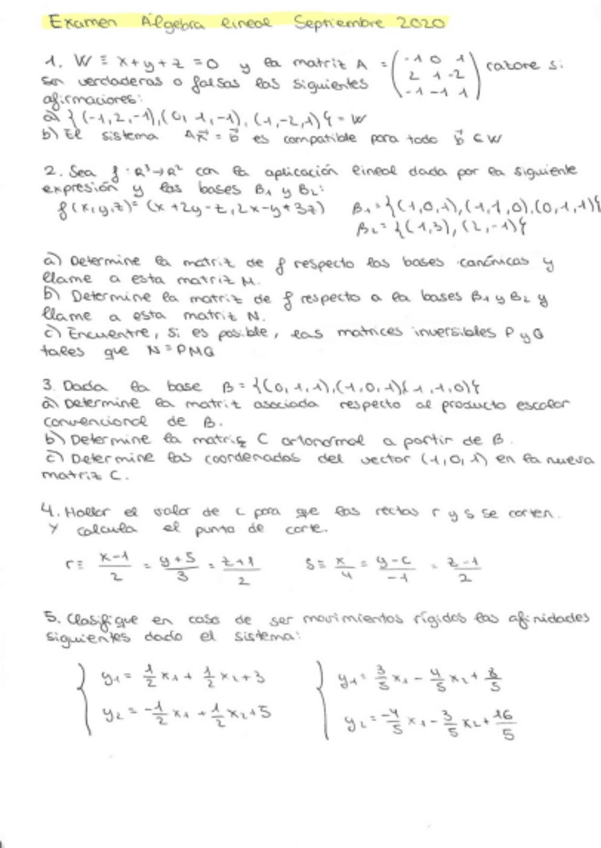 Examen Álgebra lineal Septiembre 2020
1. W ≡ x+y+z=0 y la matriz A = (-1 0 1 / 2 1 -2 / -1 -1 1) razone si
son verdaderas o falsas las siguientes
afirmaciones:
a) {(-1,2,-1),(0,1,-1),(1,-2,1)} = W
b) El sistema Ax⃗ = b⃗ es compatible para todo b⃗ ∈ W
2. Sea f: R³→R² con la aplicación lineal dada por la siguiente
expresión y las bases B1 y B2:
f(x,y,z)= (x+2y-z, 2x-y+3z) B1={(1,0,1),(1,1,0),(0,1,1)}
B2={(1,3),(2,-1)}
a) Determine la matriz de f respecto las bases canónicas y
llame a esta matriz M.
b) Determine la matriz de f respecto a la bases B1 y B2 y
llame a esta matriz N.
c) Encuentre, si es posible, las matrices inversibles P y Q
tales que N=PMQ
3. Dada la base B={(0,1,1),(1,0,1)(1,1,0)}
a) Determine la matriz asociada respecto al producto escalar
convencional de B.
b) Determine la matriz C ortonormal a partir de B.
c) Determine las coordenadas del vector (1,0,1) en la nueva
matriz C.
4. Hallar el valor de c para que las rectas r y s se corten.
Y calcula el punto de corte.
r≡ (x-1)/2 = (y+5)/3 = (z+1)/2 s≡ x/4 = (y-c)/-1 = (z-1)/2
5. Clasifique en caso de ser movimientos rígidos las afinidades
siguientes dado el sistema:
y1= 1/2 x1 + 1/2 x2 +3 y1= 3/5 x1 - 4/5 x2 + 8/5
y2= -1/2 x1 + 1/2 x2 +5 y2= -4/5 x1 - 3/5 x2 + 16/5